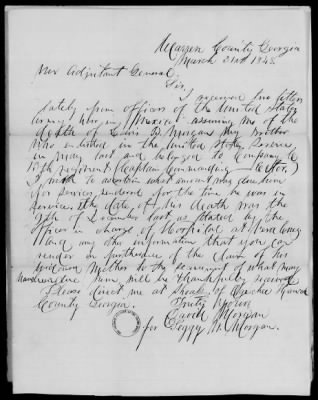 Warren County Georgia
March 21st 1848
Mr Adjutant General,
Sir,
I received two letters
lately from officers of the United States
army, who in Mexico assuring me of the
death of Lewis D. Morgan My brother
who enlisted in the United States Service
in May last and belonged to Company C
13th regiment (Captain commanding
I wish to ascertain what amount may due him
for services rendered for the time he was in
service. The date of his death was the
9th of December last as stated by the
officer in charge of Hospital at Vera Cruz
and any other information that you can
render in furtherance of the claim of his
widowed Mother to the account of what may
due him will be thankfully received
Please direct me at Shoals of Ogechee Hancock
County Georgia.
Truly yours
David Morgan
for Peggy Morgan.